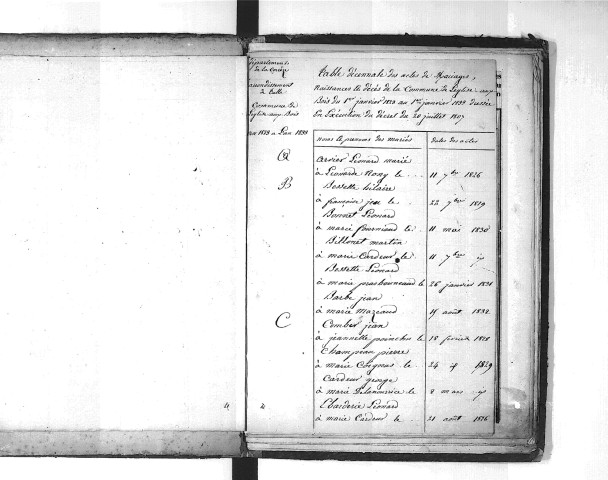 Département
de la Corrèze
arrondissement
de Tulle
Commune de
Leglise aux Bois
1823 a L'an 1833
Table décennale des actes de Mariages,
Naissances et décès de la Commune de Leglise aux
Bois du 1er janvier 1823 au 1er janvier 1833 dressée
En Exécution du décret du 20 juillet 1807
noms et prenoms des mariés
dates des actes
A
Arvier Léonard marié
à Léonarde Rony le 11 7bre 1826
B
Bossette hilaire
à francoise le 22 7bre 1829
Bonnet Léonard
à marie fourniaud le 11 mai 1830
Billonet martin
à marie Cardeur le 11 7bre id
Bossette Léonard
à marie le 26 janvier 1831
Barbe jean
à marie Mazeaud 15 août 1832
C
Combes jean
à jeannette le 18 février 1828
Champeau pierre
à marie le 24 id 1829
Cardeur george
à marie le 2 mars id
Léonard
à marie Cardeur le 21 août 1826